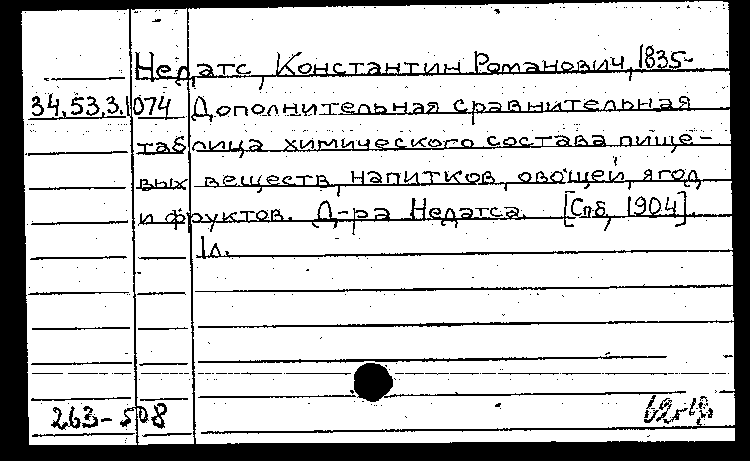 Недатс, Константин Романович, 1835-
34.53.3.1074 Дополнительная сравнительная
таблица химического состава пище-
вых веществ, напитков, овощей, ягод
и фруктов. Д-ра Недатса. [Спб, 1904].
1л.
263-508